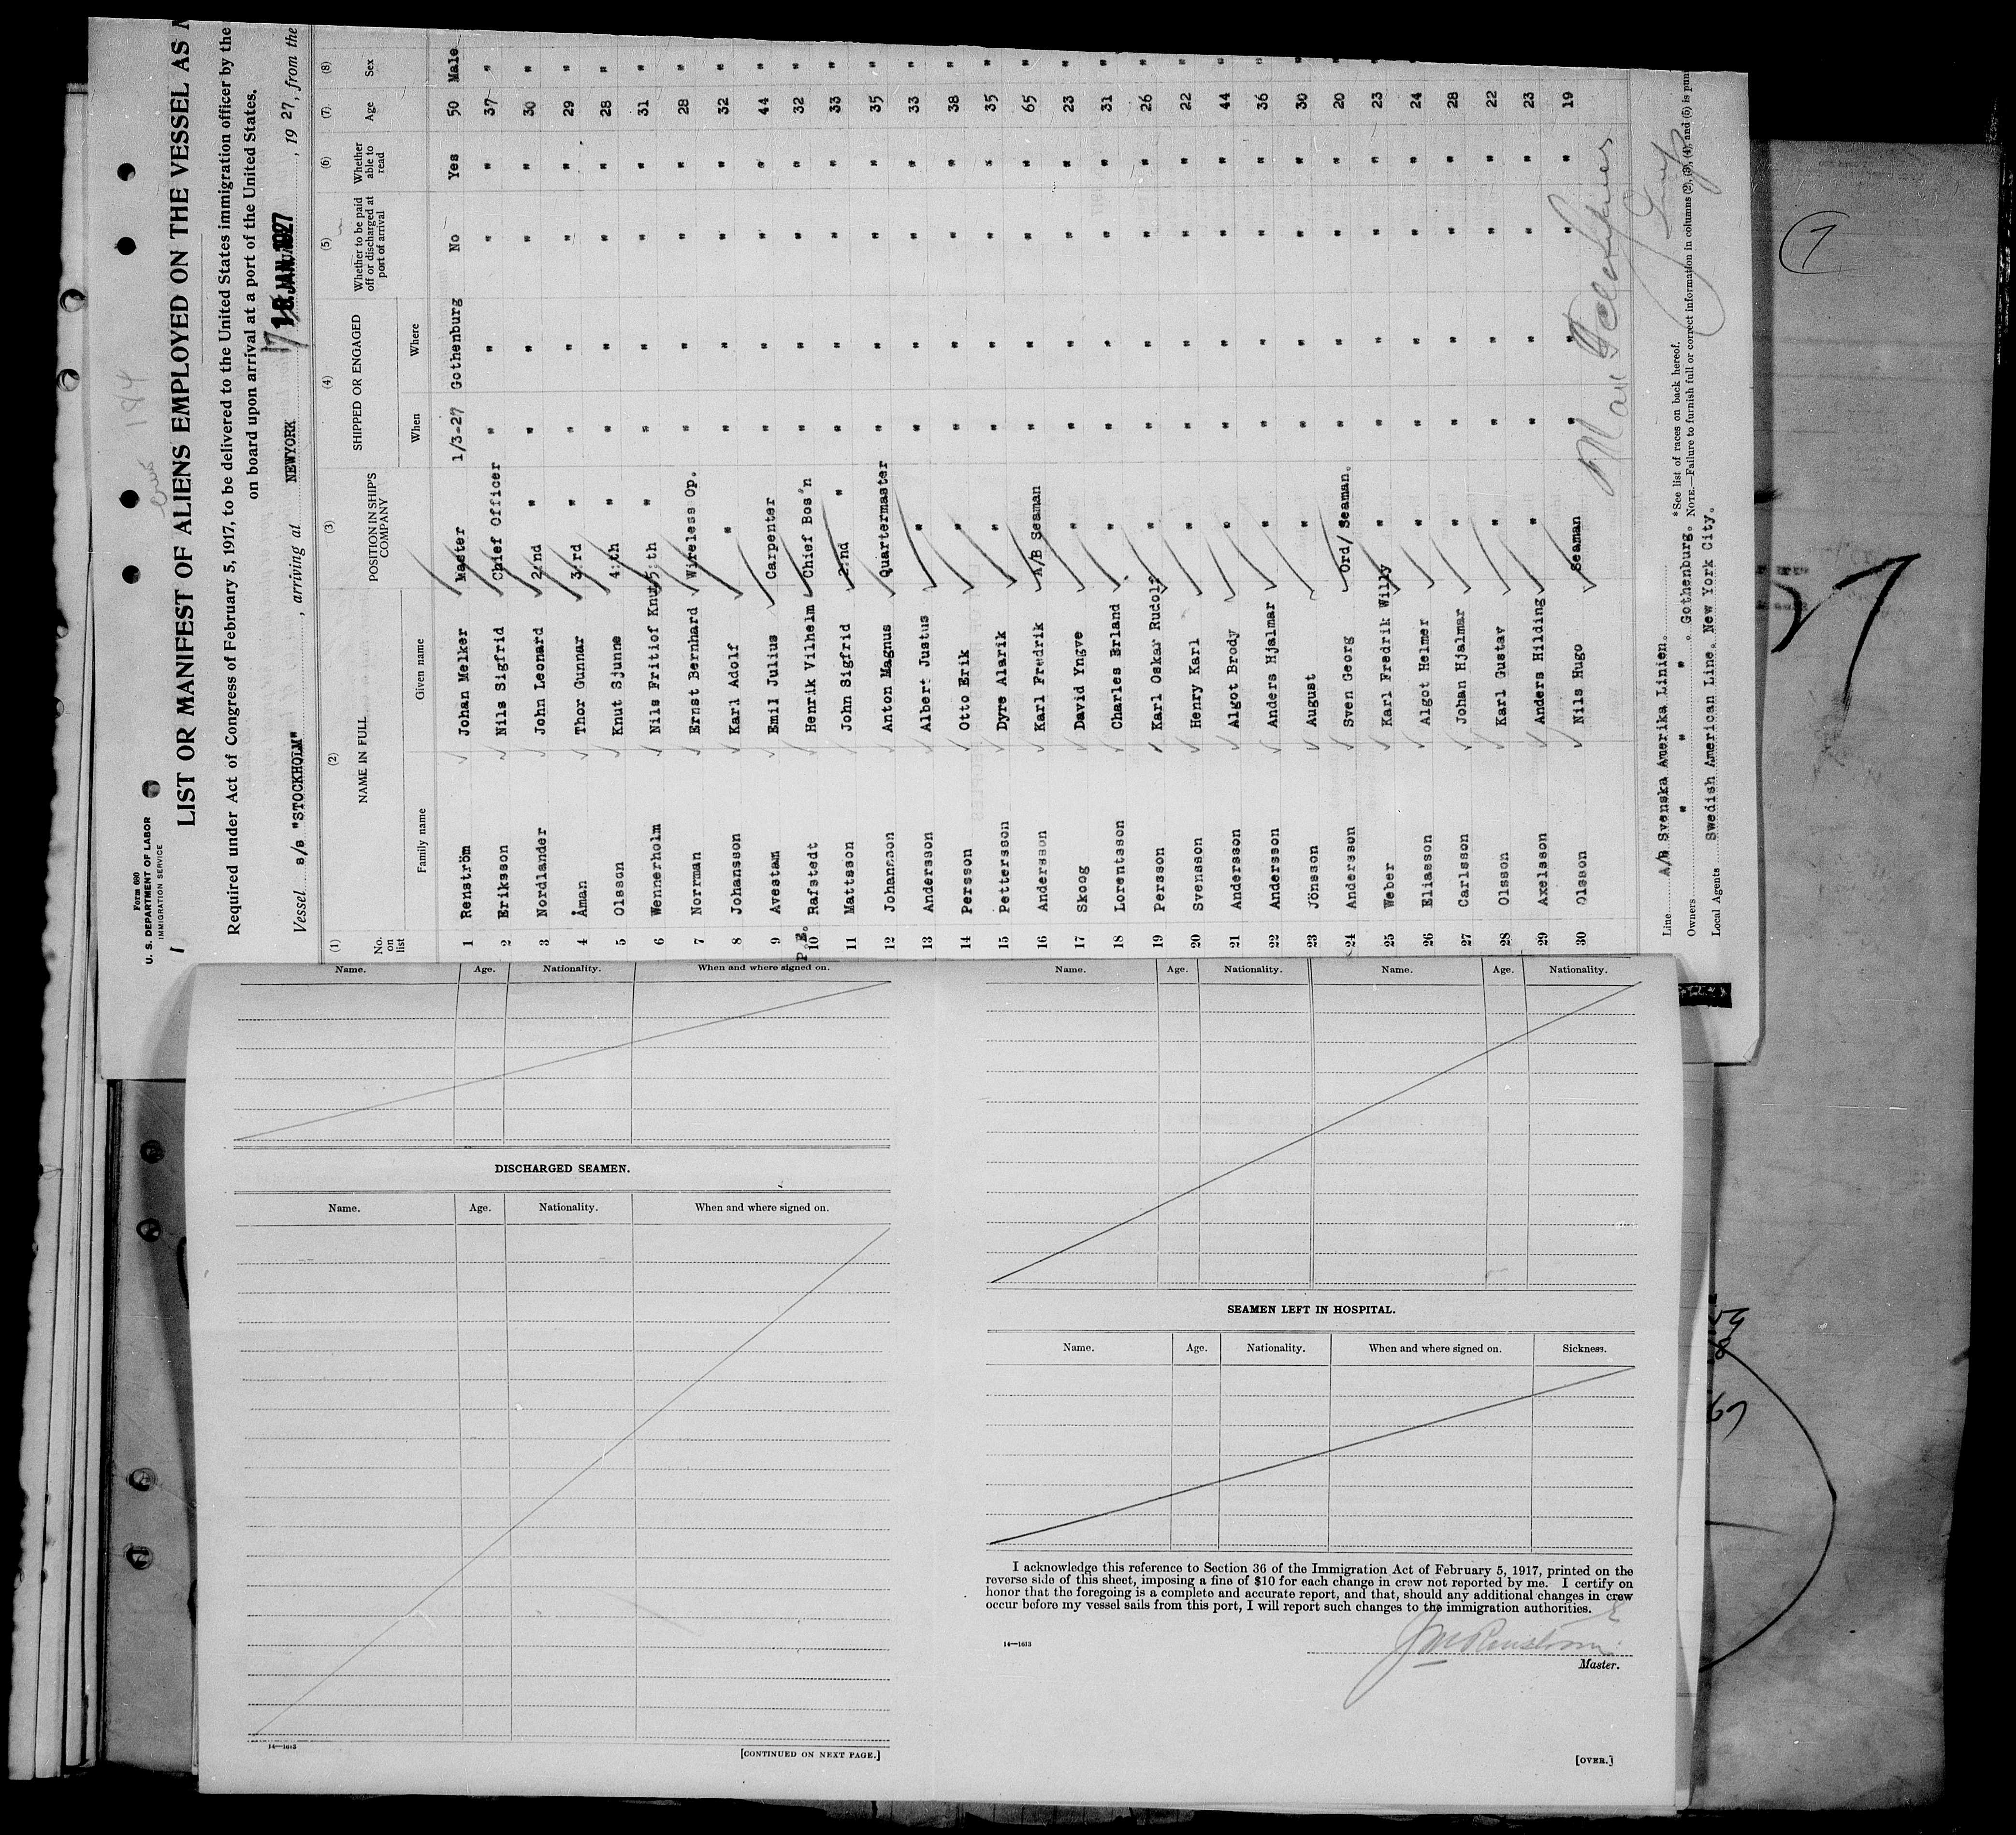 Form 680
U. S. DEPARTMENT OF LABOR
IMMIGRATION SERVICE
1
184
LIST OR MANIFEST OF ALIENS EMPLOYED ON THE VESSEL AS
Required under Act of Congress of February 5, 1917, to be delivered to the United States immigration officer by the
on board upon arrival at a port of the United States.
Vessel s/s "STOCKHOLM", arriving at NEWYORK 18 JAN. 1927, 1927, from the
(1) (2) (3) (4) (5) (6) (7) (8)
No. on list NAME IN FULL POSITION IN SHIP'S COMPANY SHIPPED OR ENGAGED Whether to be paid off or discharged at port of arrival Whether able to read Age Sex
Family name Given name When Where
1 Renström Johan Melker Master 1/3-27 Gothenburg No Yes 50 Male
2 Eriksson Nils Sigfrid Chief Officer " " " " 37 "
3 Nordlander John Leonard 2:nd " " " " " 30 "
4 Åman Thor Gunnar 3:rd " " " " " 29 "
5 Olsson Knut Sjunne 4:th " " " " " 28 "
6 Wennerholm Nils Fritiof Knut 5:th " " " " " 31 "
7 Norrman Ernst Bernhard Wireless Op. " " " " 28 "
8 Johansson Karl Adolf " " " " " 32 "
9 Avestam Emil Julius Carpenter " " " " 44 "
P.E.
10 Rafstedt Henrik Vilhelm Chief Bos'n " " " " 32 "
11 Mattsson John Sigfrid 2:nd " " " " " 33 "
12 Johansson Anton Magnus Quartermaster " " " " 35 "
13 Andersson Albert Justus " " " " " 33 "
14 Persson Otto Erik " " " " " 38 "
15 Pettersson Dyre Alarik " " " " " 35 "
16 Andersson Karl Fredrik A/B Seaman " " " " 65 "
17 Skoog David Yngve " " " " " 23 "
18 Lorentsson Charles Erland " " " " " 31 "
19 Persson Karl Oskar Rudolf " " " " " 26 "
20 Svensson Henry Karl " " " " " 22 "
21 Andersson Algot Brody " " " " " 44 "
22 Andersson Anders Hjalmar " " " " " 36 "
23 Jönsson August " " " " " 30 "
24 Andersson Sven Georg Ord/ Seaman. " " " " 20 "
25 Weber Karl Fredrik Willy " " " " " 23 "
26 Eliasson Algot Helmer " " " " " 24 "
27 Carlsson Johan Hjalmar " " " " " 28
28 Olsson Karl Gustav " " " " " 22
29 Axelsson Anders Hilding " " " " " 23
30 Olsson Nils Hugo Seaman " " " " 19
Line A/B Svenska Amerika Linien. *See list of races on back hereof.
Owners " " " . Gothenburg. NOTE.—Failure to furnish full or correct information in columns (2), (3), (4), and (5) is pun
Local Agents Swedish American Line, New York City.
Name. Age. Nationality. When and where signed on.
DISCHARGED SEAMEN.
Name. Age. Nationality. When and where signed on.
14—1613
[CONTINUED ON NEXT PAGE.]
Name. Age. Nationality. Name. Age. Nationality.
SEAMEN LEFT IN HOSPITAL.
Name. Age. Nationality. When and where signed on. Sickness.
I acknowledge this reference to Section 36 of the Immigration Act of February 5, 1917, printed on the
reverse side of this sheet, imposing a fine of $10 for each change in crew not reported by me. I certify on
honor that the foregoing is a complete and accurate report, and that, should any additional changes in crew
occur before my vessel sails from this port, I will report such changes to the immigration authorities.
JM Renström
14—1613
Master.
[OVER.]